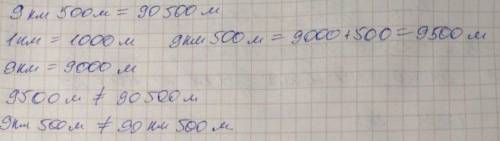 9 км 500 м = 90 500 м
1 км = 1000 м 9 км 500 м = 9000 + 500 = 9500 м
9 км = 9000 м
9500 м ≠ 90 500 м
9 км 500 м ≠ 90 км 500 м